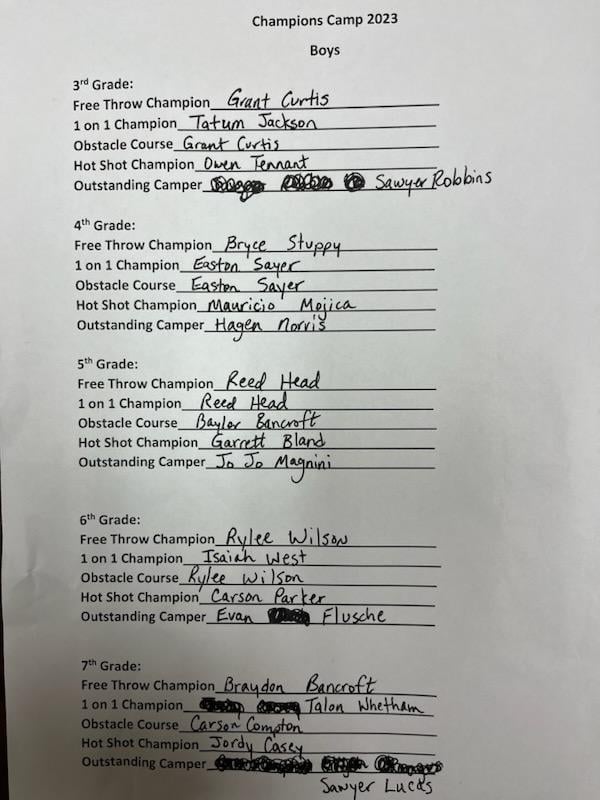 Champions Camp 2023
Boys
3rd Grade:
Free Throw Champion Grant Curtis
1 on 1 Champion Tatum Jackson
Obstacle Course Grant Curtis
Hot Shot Champion Owen Tennant
Outstanding Camper Sawyer Robbins
4th Grade:
Free Throw Champion Bryce Stuppy
1 on 1 Champion Easton Sayer
Obstacle Course Easton Sayer
Hot Shot Champion Mauricio Mojica
Outstanding Camper Hagen Norris
5th Grade:
Free Throw Champion Reed Head
1 on 1 Champion Reed Head
Obstacle Course Baylor Bancroft
Hot Shot Champion Garrett Bland
Outstanding Camper Jo Jo Magnini
6th Grade:
Free Throw Champion Rylee Wilson
1 on 1 Champion Isaiah West
Obstacle Course Rylee Wilson
Hot Shot Champion Carson Parker
Outstanding Camper Evan Flusche
7th Grade:
Free Throw Champion Braydon Bancroft
1 on 1 Champion Talon Whetham
Obstacle Course Carson Compton
Hot Shot Champion Jordy Casey
Outstanding Camper
Sawyer Lucas